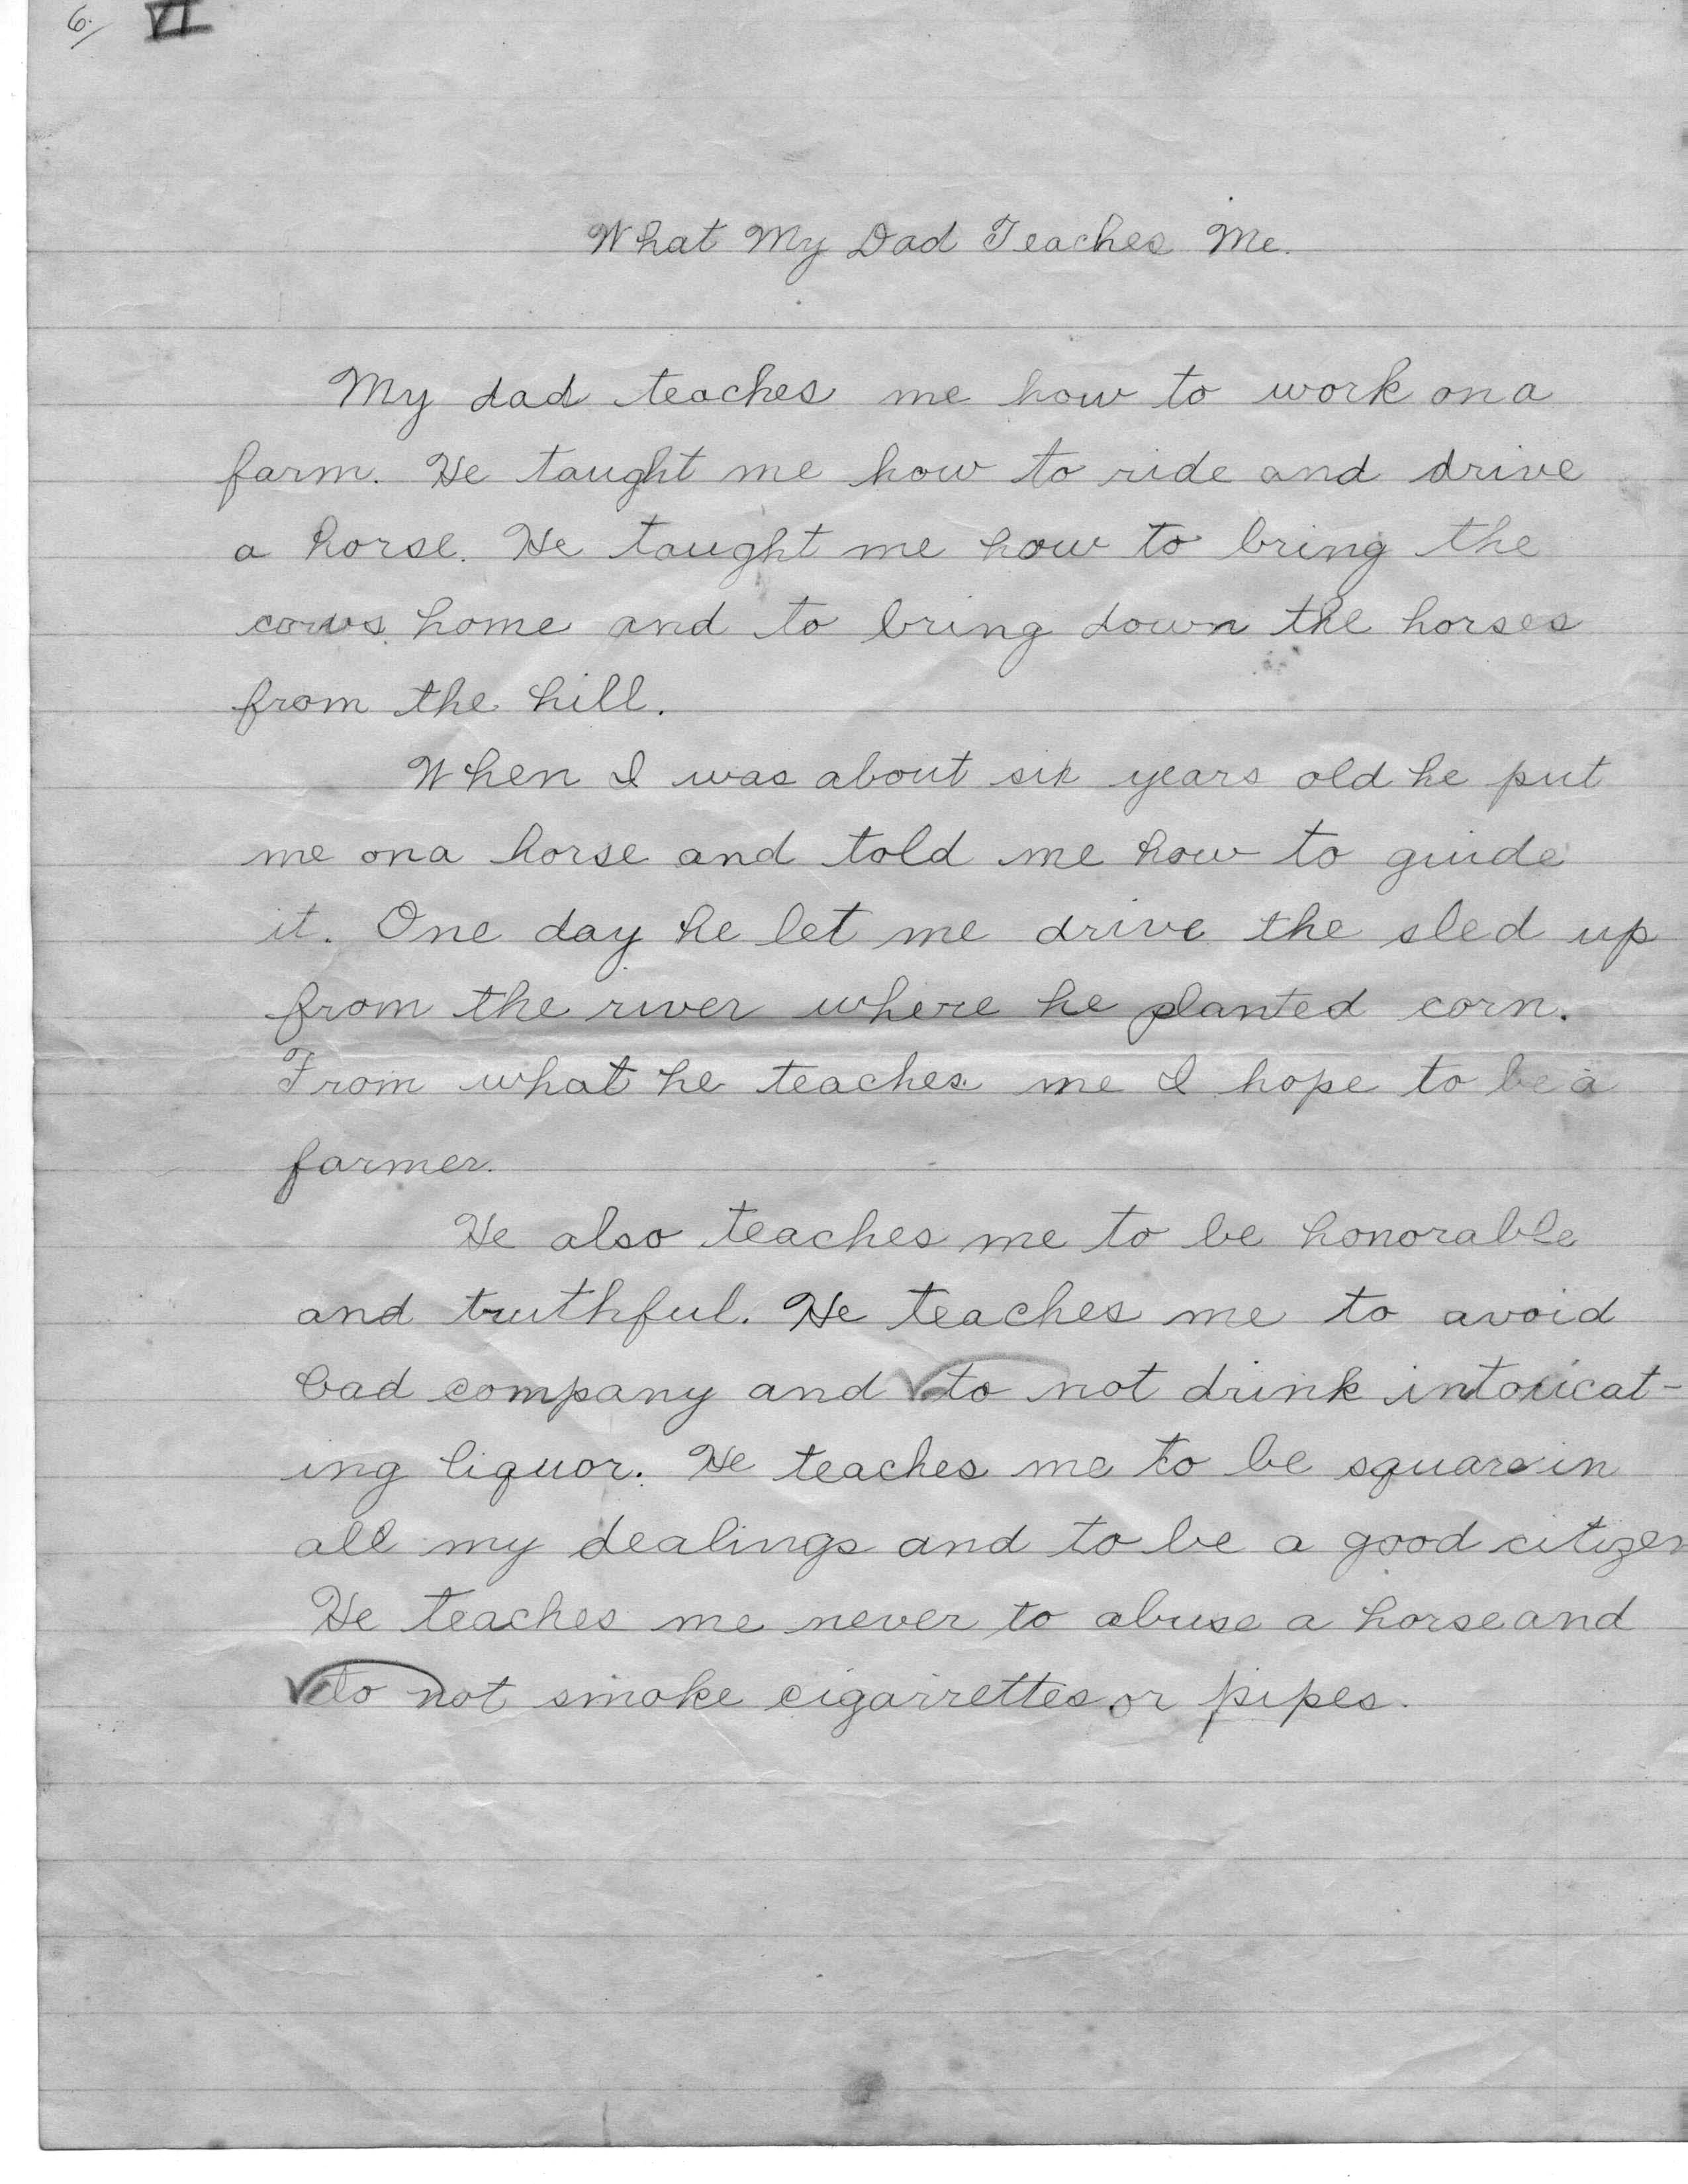 6. VI
What My Dad Teaches Me.
My dad teaches me how to work on a
farm. He taught me how to ride and drive
a horse. He taught me how to bring the
cows home and to bring down the horses
from the hill.
When I was about six years old he put
me on a horse and told me how to guide
it. One day he let me drive the sled up
from the river where he planted corn.
From what he teaches me I hope to be a
farmer.
He also teaches me to be honorable
and truthful. He teaches me to avoid
bad company and to not drink intoxicat-
ing liquor. He teaches me to be square in
all my dealings and to be a good citizen
He teaches me never to abuse a horse and
to not smoke cigarrettes or pipes.